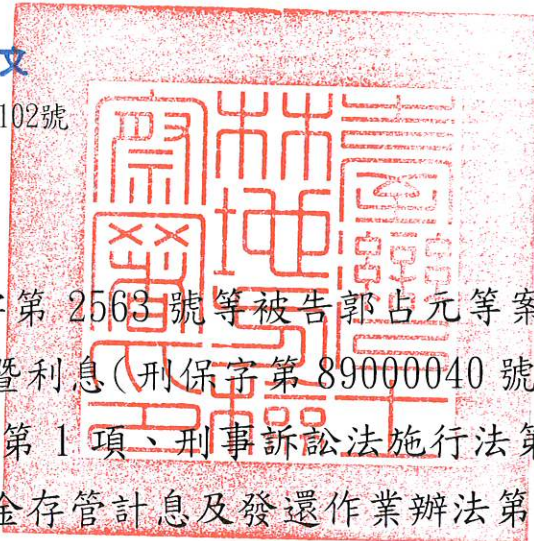 文
102號
第 2563 號等被告郭占元等案
暨利息(刑保字第 89000040 號
第 1 項、刑事訴訟法施行法第
金存管計息及發還作業辦法第